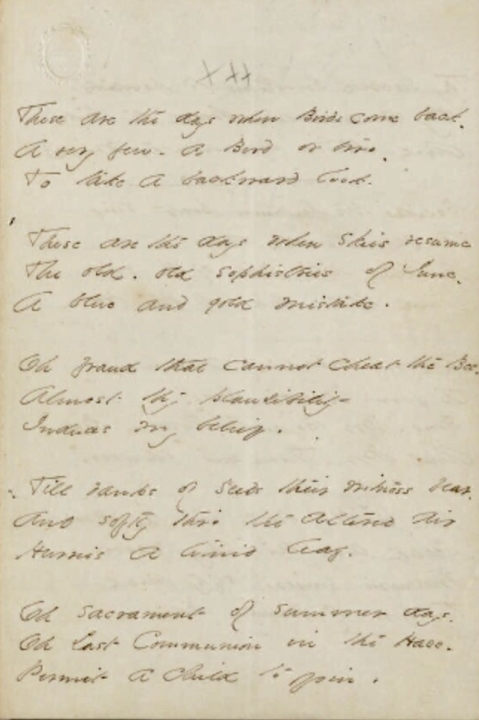 XXX
These are the days when Birds come back.
A very few - A Bird or two.
To take a backward look.
These are the days when skies resume
The old. old sophistries of June.
A blue and gold mistake.
Oh fraud that cannot cheat the Bee.
Almost thy plausibility
Induces my belief.
Till ranks of seeds their witness bear.
And softly thro' the altered air
Hurries a timid leaf.
Oh sacrament of summer days.
Oh Last Communion in the Haze.
Permit a child to join.